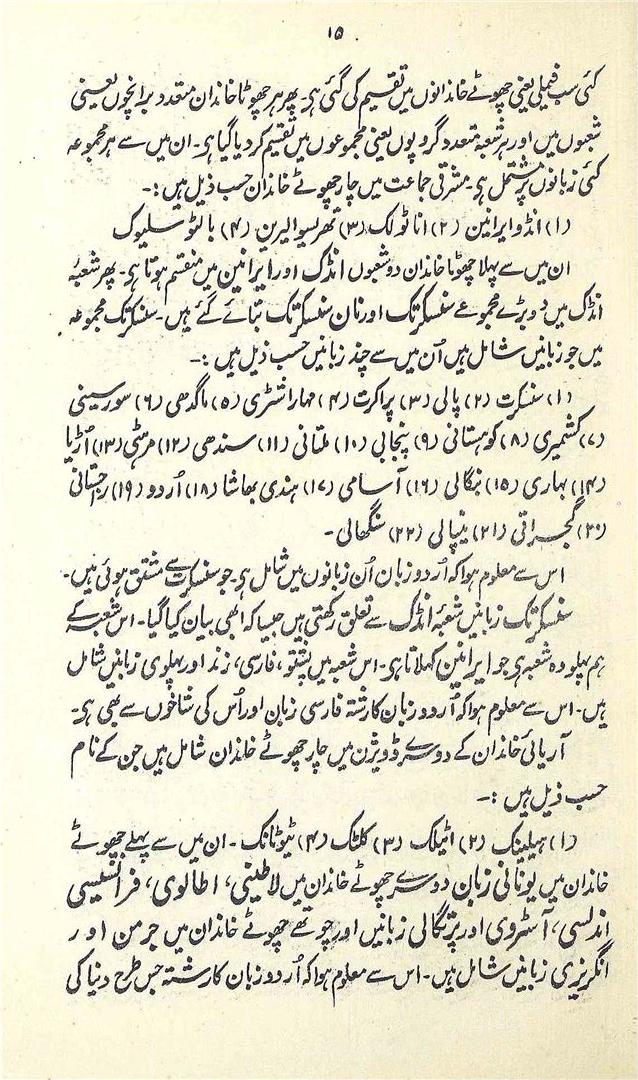 ۱۵
کئی سب فیملی یعنی چھوٹے خاندانوں میں تقسیم کی گئی ہی۔ پھر ہر چھوٹا خاندان متعدد برانچوں یعنی
شعبوں میں اور ہر شعبہ متعدد گروپوں یعنی مجموعوں میں تقسیم کر دیا گیا ہی۔ ان میں سے ہر مجموعہ
کئی زبانوں پر مشتمل ہی۔ مشرقی جماعت میں چار چھوٹے خاندان حسب ذیل ہیں :۔
(۱) انڈو ایرانین (۲) اناٹولک (۳) تھریسوالیرین (۴) بالٹو سلیوک
ان میں سے پہلا چھوٹا خاندان دو شعبوں انڈک اور ایرانین میں منقسم ہوتا ہی۔ پھر شعبۂ
انڈک میں دو بڑے مجموعے سنسکرتک اور نان سنسکرتک بتائے گئے ہیں۔ سنسکرتک مجموعہ
میں جو زبانیں شامل ہیں اُن میں سے چند زبانیں حسب ذیل ہیں :۔
(۱) سنسکرت (۲) پالی (۳) پراکرت (۴) مہاراشٹری (۵) ماگدھی (۶) سورسینی
(۷) کشمیری (۸) کوہستانی (۹) پنجابی (۱۰) ملتانی (۱۱) سندھی (۱۲) مرہٹی (۱۳) اُڑیا
(۱۴) بہاری (۱۵) بنگالی (۱۶) آسامی (۱۷) ہندی بھاشا (۱۸) اُردو (۱۹) راجستانی
(۲۰) گجراتی (۲۱) نیپالی (۲۲) سنگھالی۔
اس سے معلوم ہوا کہ اُردو زبان اُن زبانوں میں شامل ہی۔ جو سنسکرت سے مشتق ہوئی ہیں۔
سنسکرتک زبانیں شعبۂ انڈک سے تعلق رکھتی ہیں جیسا کہ ابھی بیان کیا گیا۔ اس شعبہ کے
ہم پہلو وہ شعبہ ہی جو ایرانین کہلاتا ہی۔ اس شعبہ میں پشتو، فارسی، زند اور پہلوی زبانیں شامل
ہیں۔ اس سے معلوم ہوا کہ اُردو زبان کا رشتہ فارسی زبان اور اُس کی شاخوں سے بھی ہی۔
آریائی خاندان کے دوسرے ڈویژن میں چار چھوٹے خاندان شامل ہیں جن کے نام
حسب ذیل ہیں :۔
(۱) ہیلینک (۲) اٹیلک (۳) کلٹک (۴) ٹیوٹانک۔ ان میں سے پہلے چھوٹے
خاندان میں یونانی زبان دوسرے چھوٹے خاندان میں لاطینی، اطالوی، فرانسیسی
اندلسی، آسٹروی اور پرتگالی زبانیں اور چوتھے چھوٹے خاندان میں جرمن اور
انگریزی زبانیں شامل ہیں۔ اس سے معلوم ہوا کہ اُردو زبان کا رشتہ جس طرح دنیا کی